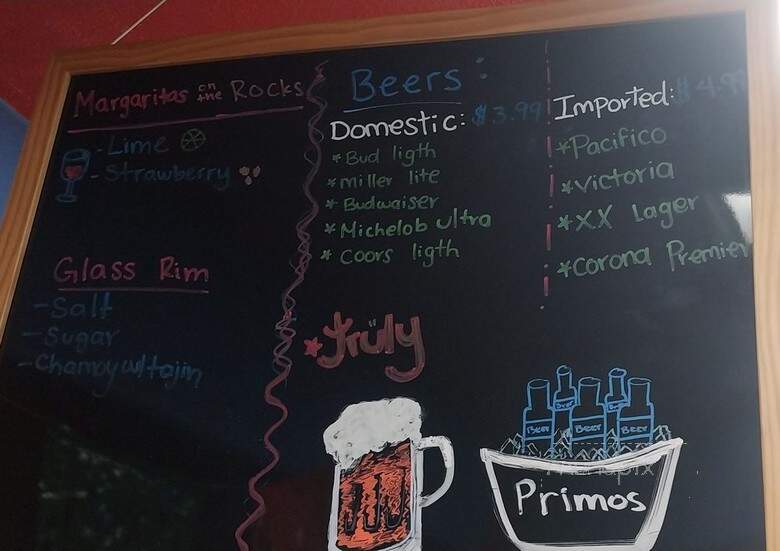 Margaritas on the Rocks
- Lime
- Strawberry
Glass Rim
- Salt
- Sugar
- Chamoy w/tajin
Beers:
Domestic: $3.99
* Bud ligth
* miller lite
* Budwaiser
* Michelob ultra
* Coors ligth
Imported: $4.99
* Pacifico
* Victoria
* XX Lager
* Corona Premier
* Truly
BEER
BEER
BEER
BEER
Primos